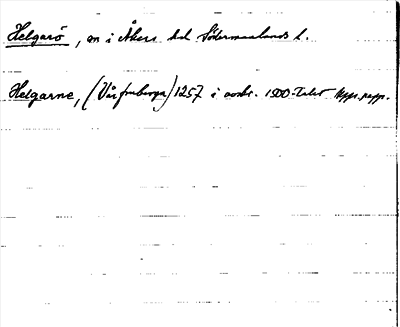 Helgarö, en i Åkers hd Södermanlands l.
Helgarne, (Vårfruberga) 1257 i avskr. 1500-talet